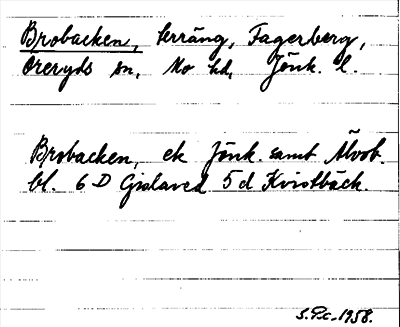 Brobacken, terräng, Fagerberg,
Öreryds sn, Mo hd, Jönk. l.
Brobacken, ek Jönk. samt Älvsb.
bl. 6 D Gislaved 5 d Kvistbäck.
S.P.c. 1958.